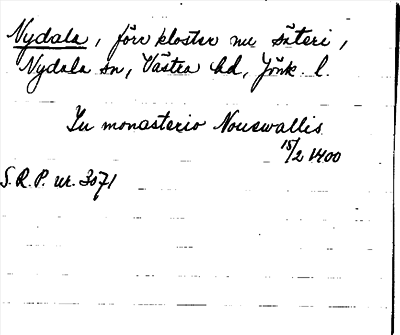 Nydala, förr kloster nu säteri,
Nydala sn, Västra hd, Jönk. l.
In monasterio Nouewallis
15/2 1400
S.R.P. nr. 3071